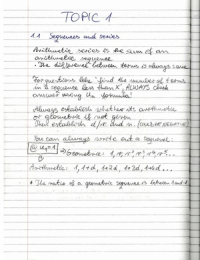 TOPIC 1
1.1 Sequences and series
Arithmetic series is the sum of an
arithmetic sequence
- The difference between terms is always same
For questions like "find the number of terms
in a series less than X", ALWAYS check
answer using the formula
Always establish whether its arithmetic
or geometric if not given
Then establish d/r and n.
You can always write out a sequence:
u₁=1 → Geometric: 1, r, r², r³, r⁴, r⁵...
Arithmetic: 1, 1+d, 1+2d, 1+3d, 1+4d...
* The ratio of a geometric sequence is between